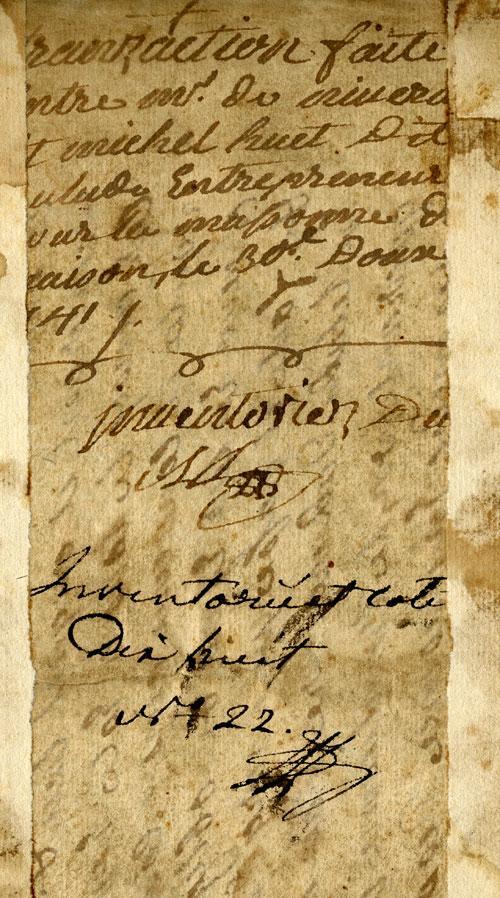 tranzaction faite
entre mr. de nivera
et michel huet Dit
Duludé Entrepreneur
pour la massonne d
maison, le 30e.
1741
inventoriez Du
Inventorié et coté
Dix huit
No 22.